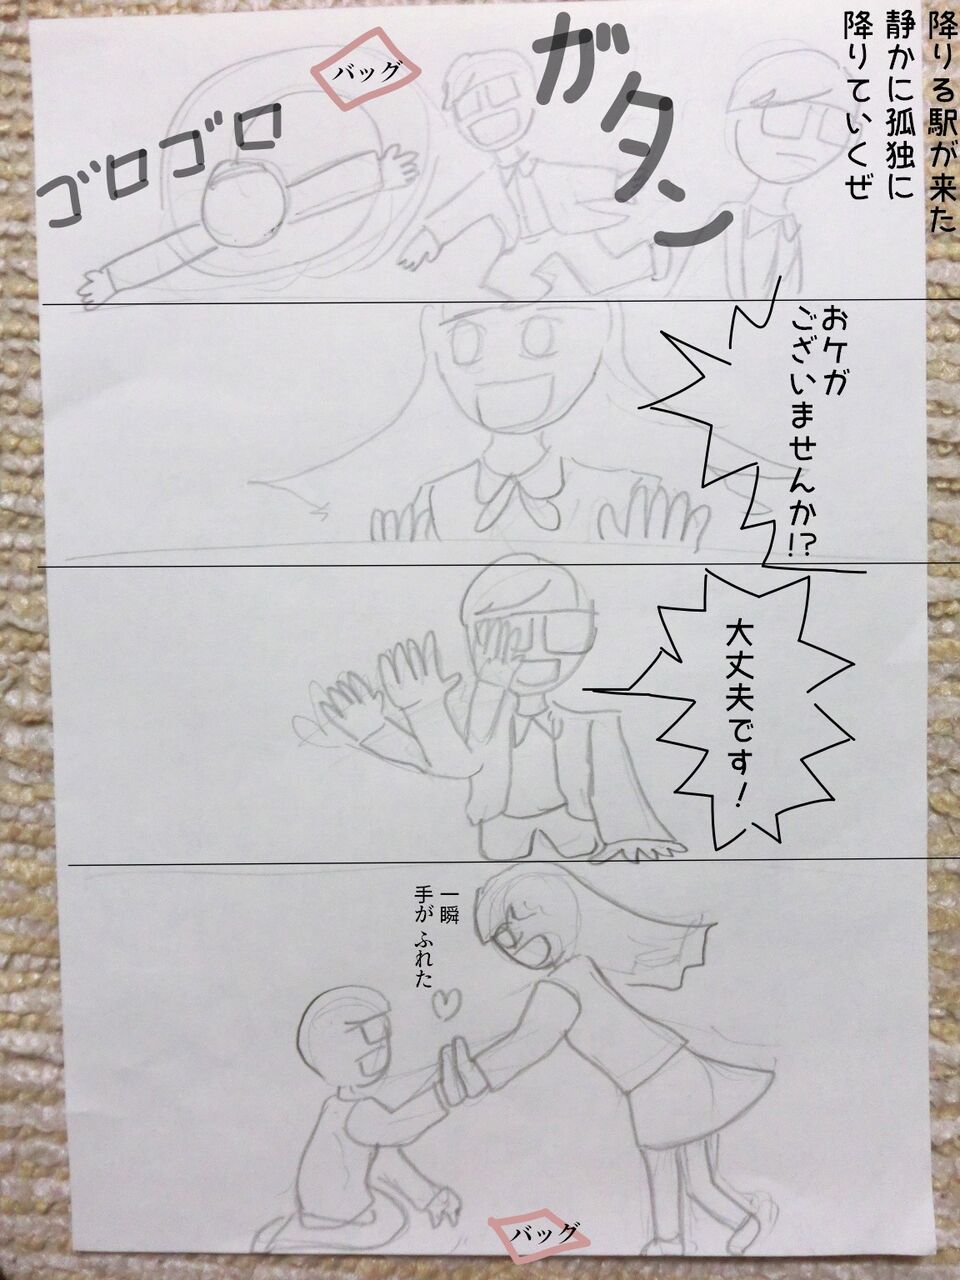 降りる駅が来た
静かに孤独に
降りていくぜ
ガタン
バッグ
ゴロゴロ
おケガ
ございませんか!?
大丈夫です!
一瞬
手がふれた
バッグ